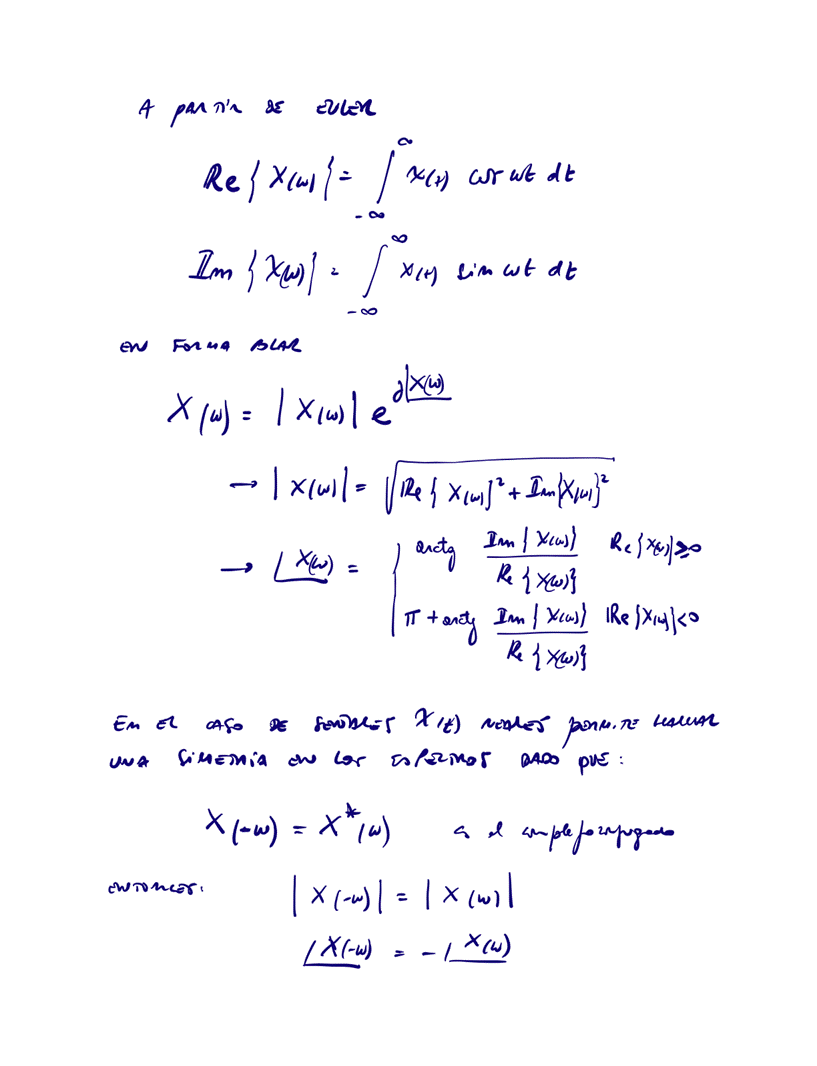 A PARTIR DE EULER
Re{X(ω)} = ∫_{-∞}^{∞} x(t) cos ωt dt
Im{X(ω)} = ∫_{-∞}^{∞} x(t) sin ωt dt
EN FORMA POLAR
X(ω) = |X(ω)| e^{j∠X(ω)}
→ |X(ω)| = √(Re{X(ω)}² + Im{X(ω)}²)
→ ∠X(ω) = { arctg Im{X(ω)} / Re{X(ω)} Re{X(ω)} ≥ 0
π + arctg Im{X(ω)} / Re{X(ω)} Re{X(ω)} < 0
EN EL CASO DE SEÑALES X(t) REALES PERMITE HALLAR
UNA SIMETRÍA EN LOS ESPECTROS DADO QUE:
X(-ω) = X*(ω) es el complejo conjugado
ENTONCES: |X(-ω)| = |X(ω)|
∠X(-ω) = -∠X(ω)